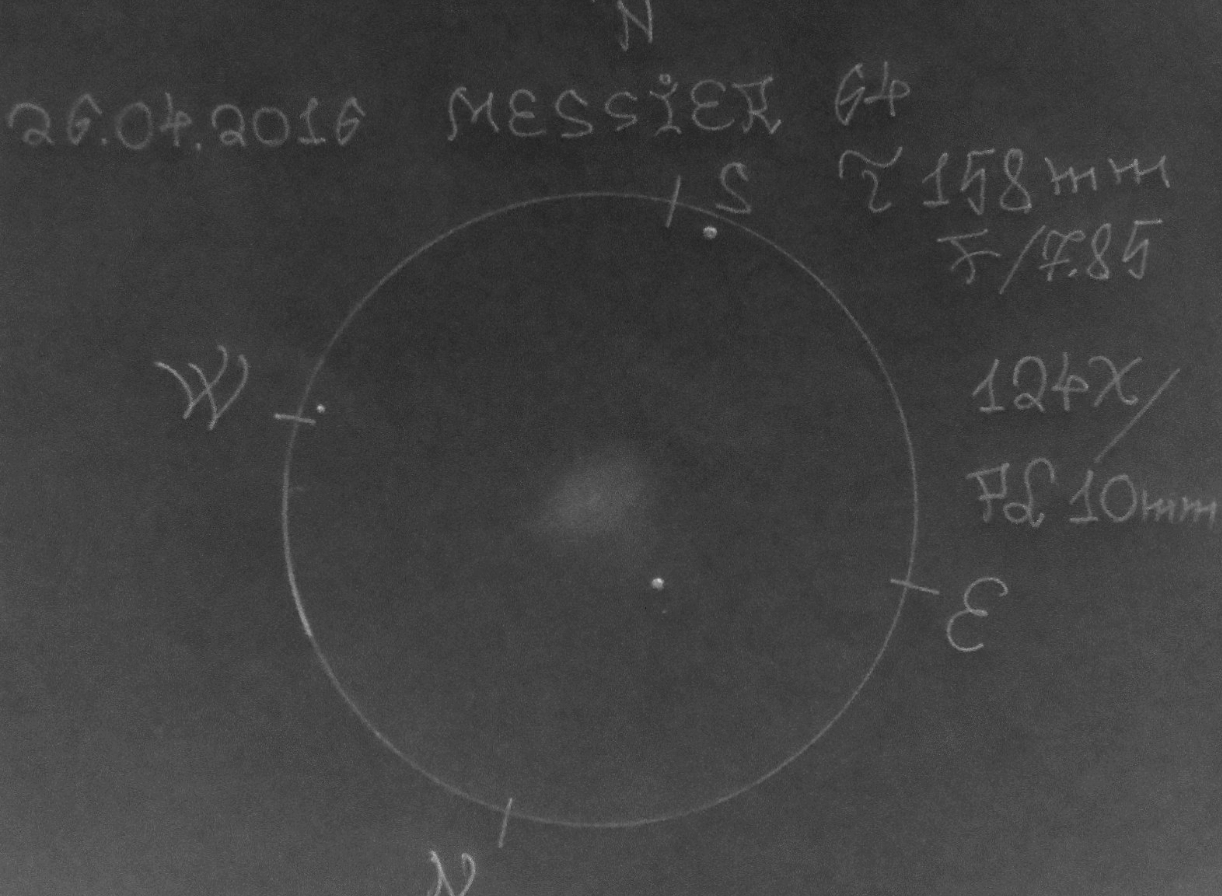 N
26.04.2016 MESSIER 64
S T 158mm
F/7.85
W
124X/
PL 10mm
E
N